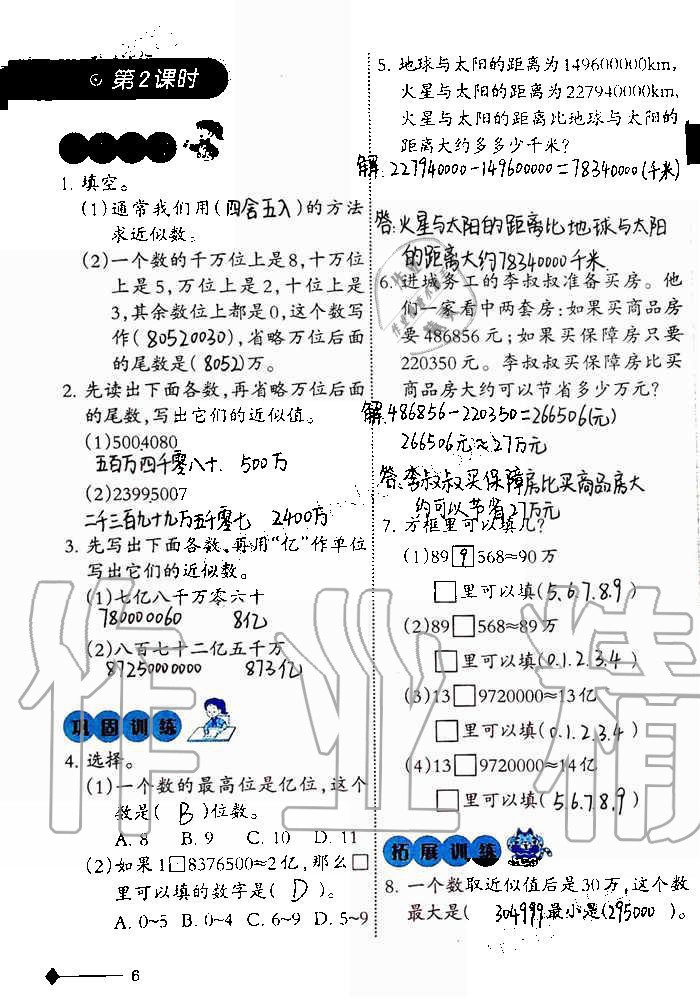 第2课时
1. 填空。
(1)通常我们用(四舍五入)的方法
求近似数。
(2)一个数的千万位上是8,十万位
上是5,万位上是2,十位上是
3,其余数位上都是0,这个数写
作(80520030),省略万位后面
的尾数是(8052)万。
2. 先读出下面各数,再省略万位后面
的尾数,写出它们的近似值。
(1)5004080
五百万四千零八十. 500万
(2)23995007
二千三百九十九万五千零七 2400万
3. 先写出下面各数,再用“亿”作单位
写出它们的近似数。
(1)七亿八千万零六十
780000060 8亿
(2)八百七十二亿五千万
87250000000 873亿
巩固训练
4. 选择。
(1)一个数的最高位是亿位,这个
数是( B )位数。
A. 8 B. 9 C. 10 D. 11
(2)如果1□8376500≈2亿,那么□
里可以填的数字是( D )。
A. 0~5 B. 0~4 C. 6~9 D. 5~9
6
5. 地球与太阳的距离为149600000km,
火星与太阳的距离为227940000km,
火星与太阳的距离比地球与太阳的
距离大约多多少千米?
解:227940000-149600000=78340000(千米)
答:火星与太阳的距离比地球与太阳
的距离大约78340000千米.
6. 进城务工的李叔叔准备买房。他
们一家看中两套房:如果买商品房
要486856元;如果买保障房只要
220350元。李叔叔买保障房比买
商品房大约可以节省多少万元?
解:486856-220350=266506(元)
266506元≈27万元
答:李叔叔买保障房比买商品房大
约可以节省27万元
7. 方框里可以填几?
(1)89 9 568≈90万
□里可以填(5.6.7.8.9)
(2)89□568≈89万
□里可以填(0.1.2.3.4)
(3)13□9720000≈13亿
□里可以填(0.1.2.3.4)
(4)13□9720000≈14亿
□里可以填(5.6.7.8.9)
拓展训练
8. 一个数取近似值后是30万,这个数
最大是( 304999.最小是(295000 )。
作业精